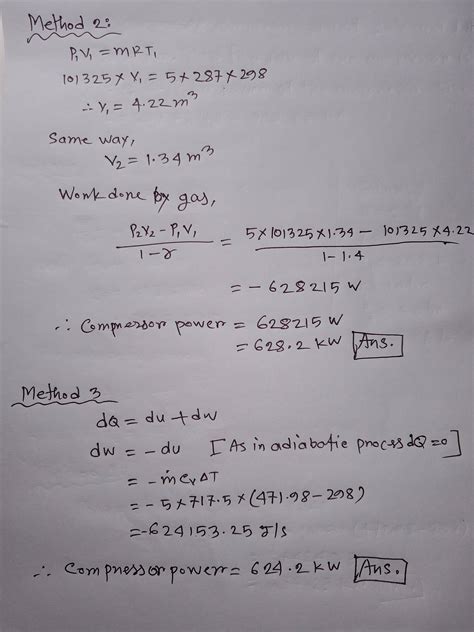 Method 2:
P₁V₁ = mRT₁
101325 × V₁ = 5 × 287 × 298
∴ V₁ = 4.22 m³
Same way,
V₂ = 1.34 m³
Work done by gas,
(P₂V₂ - P₁V₁)/(1-γ) = (5×101325×1.34 - 101325×4.22)/(1-1.4)
= - 628215 W
∴ Compressor power = 628215 W
= 628.2 KW Ans.
Method 3
dQ = du + dw
dw = - du [As in adiabatic process dQ = 0]
= - ṁcᵥΔT
= - 5 × 717.5 × (471.98 - 298)
= -624153.25 J/s
∴ Compressor power = 624.2 KW Ans.